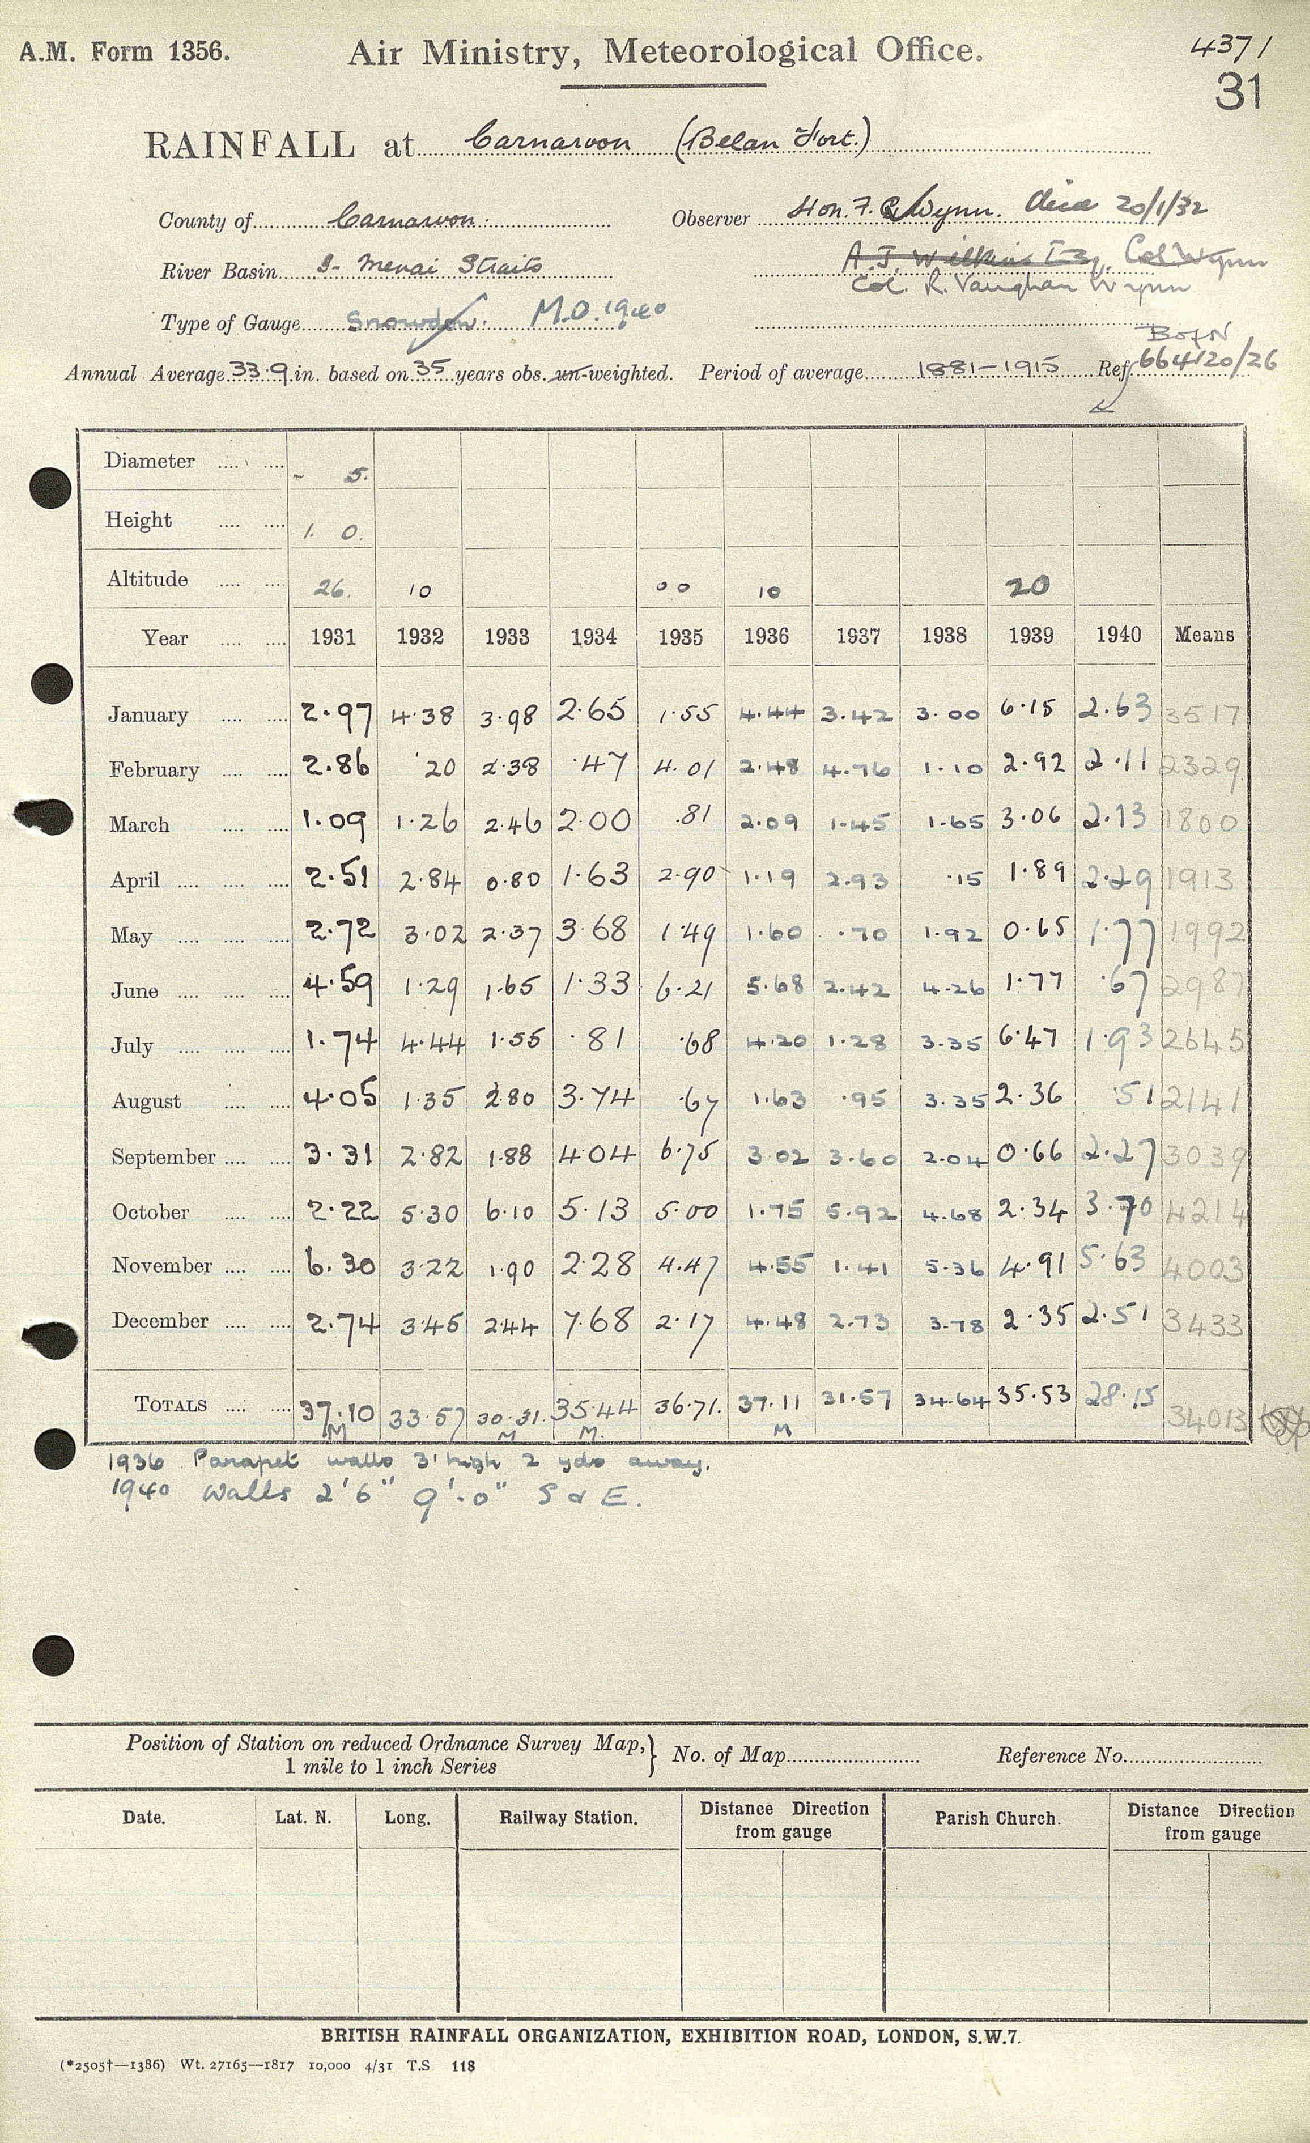 A.M. Form 1356.
Air Ministry, Meteorological Office.
4371
31
RAINFALL at Carnarvon (Belan Fort.)
County of Carnarvon. Observer Hon. F. G. Wynn. died 20/1/32
River Basin S- Menai Straits A. J. Wilkins Esq. Col Wynn
Col. R. Vaughan Wynn
Type of Gauge Snowdon. M.O. 1940
Annual Average 33.9 in. based on 35 years obs. un-weighted. Period of average 1881-1915 Ref. 664120/26
Diameter - 5.
Height 1. 0.
Altitude 26. 10 00 10 20
Year 1931 1932 1933 1934 1935 1936 1937 1938 1939 1940 Means
January 2.97 4.38 3.98 2.65 1.55 4.44 3.42 3.00 6.15 2.63 3517
February 2.86 .20 2.38 .47 4.01 2.48 4.76 1.10 2.92 2.11 2329
March 1.09 1.26 2.46 2.00 .81 2.09 1.45 1.65 3.06 2.13 1800
April 2.51 2.84 0.80 1.63 2.90 1.19 2.93 .15 1.89 2.29 1913
May 2.72 3.02 2.37 3.68 1.49 1.60 .70 1.92 0.65 1.77 1992
June 4.59 1.29 1.65 1.33 6.21 5.68 2.42 4.26 1.77 .67 2987
July 1.74 4.44 1.55 .81 .68 4.20 1.28 3.35 6.47 1.93 2645
August 4.05 1.35 2.80 3.74 .67 1.63 .95 3.35 2.36 .51 2141
September 3.31 2.82 1.88 4.04 6.75 3.02 3.60 2.04 0.66 2.27 3039
October 2.22 5.30 6.10 5.13 5.00 1.75 5.92 4.68 2.34 3.70 4214
November 6.30 3.22 1.90 2.28 4.47 4.55 1.41 5.36 4.91 5.63 4003
December 2.74 3.45 2.44 7.68 2.17 4.48 2.73 3.78 2.35 2.51 3433
TOTALS 37.10 33.57 30.31. 35.44 36.71. 37.11 31.57 34.64 35.53 28.15 34013
M M M M
1936 Parapet walls 3' high 2 yds away.
1940 Walls 2'6" 9'-0" S & E.
Position of Station on reduced Ordnance Survey Map, 1 mile to 1 inch Series } No. of Map Reference No.
Date. Lat. N. Long. Railway Station. Distance Direction from gauge Parish Church. Distance Direction from gauge
BRITISH RAINFALL ORGANIZATION, EXHIBITION ROAD, LONDON, S.W.7.
(*2505†—1386) Wt. 27165—1817 10,000 4/31 T.S 118